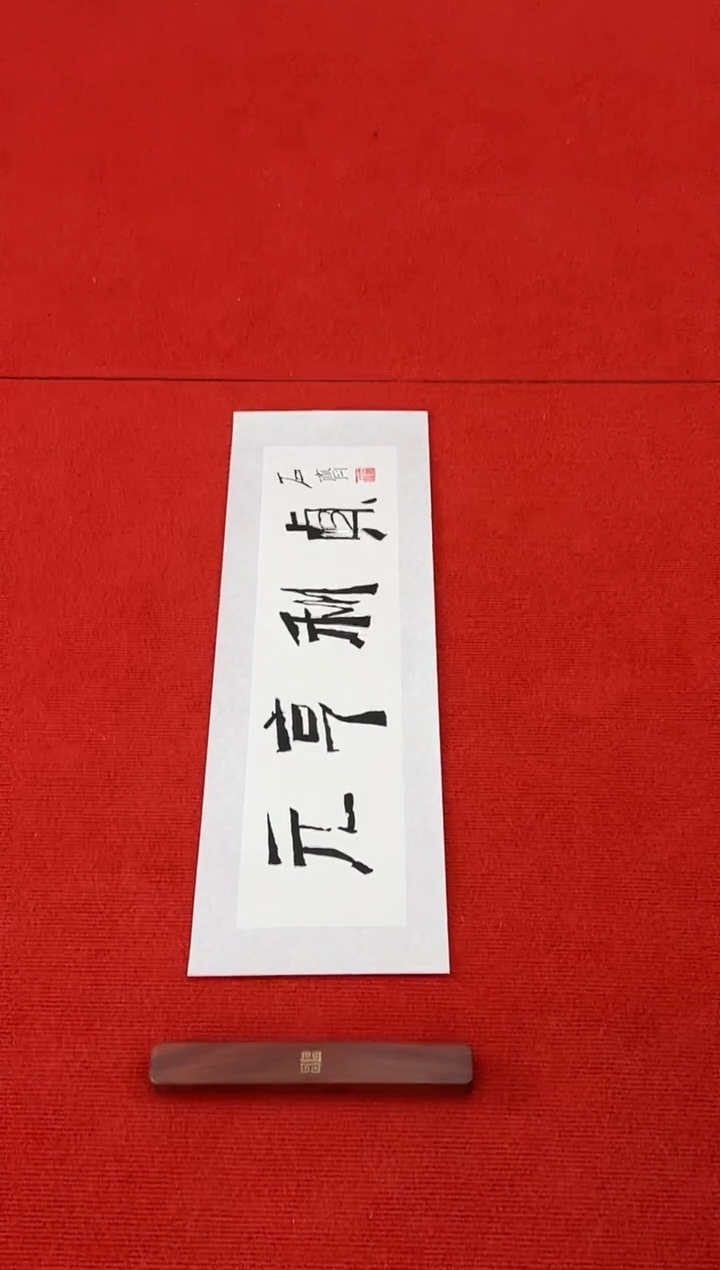 元亨利貞
石齋